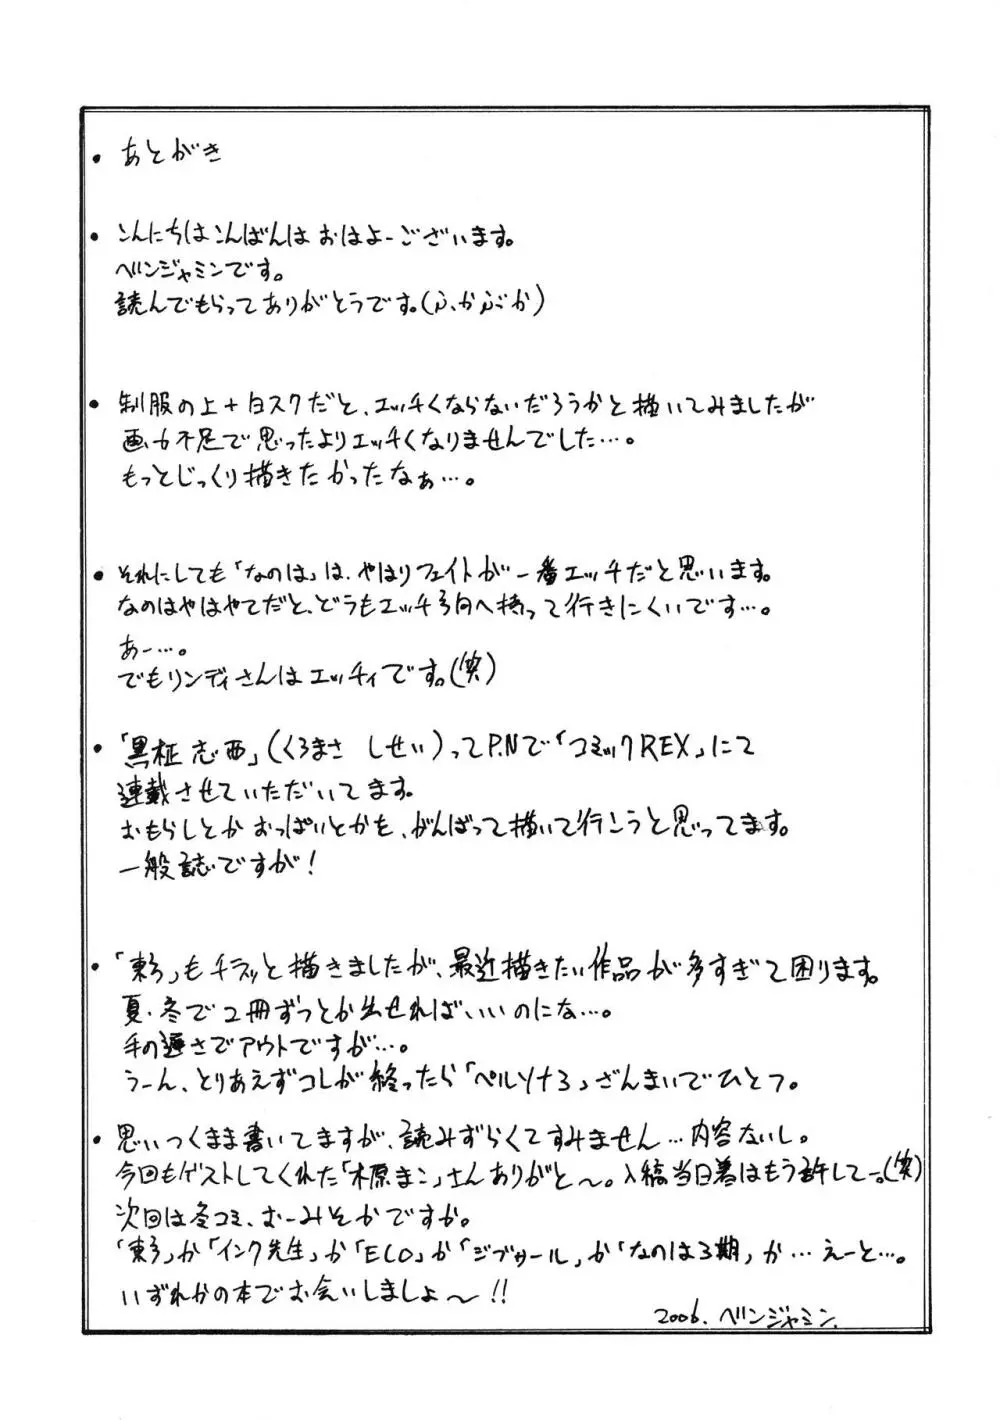 ・あとがき
・こんにちはこんばんはおはよーございます。
ベンジャミンです。
読んでもらってありがとうです。(ふかぶか)
・制服の上+白スクだと、エッチくならないだろうかと描いてみましたが
画力不足で思ったよりエッチくなりませんでした…。
もっとじっくり描きたかったなぁ…。
・それにしても「なのは」は、やはりフェイトが一番エッチだと思います。
なのはやはやてだと、どうもエッチ方向へ持って行きにくいです…。
あー…。
でもリンディさんはエッチィです。(笑)
・「黒柾志西」(くろまさ しせい)ってP.Nで「コミックREX」にて
連載させていただいてます。
おもらしとかおっぱいとかを、がんばって描いて行こうと思ってます。
一般誌ですが!
・「東方」もチラッと描きましたが、最近描きたい作品が多すぎて困ります。
夏・冬で2冊ずつとか出せればいいのにな…。
手の遅さでアウトですが…。
うーん、とりあえずコレが終ったら「ペルソナ3」ざんまいでひとつ。
・思いつくまま書いてますが、読みずらくてすみません…内容ないし。
今回もゲストしてくれた「木原まこ」さんありがと〜。入稿当日着はもう許してー。(笑)
次回は冬コミ、おーみそかですか。
「東方」か「インク先生」か「ECO」か「ジブリール」か「なのは3期」か…えーと…。
いずれかの本でお会いしましょ〜!!
2006. ベンジャミン.